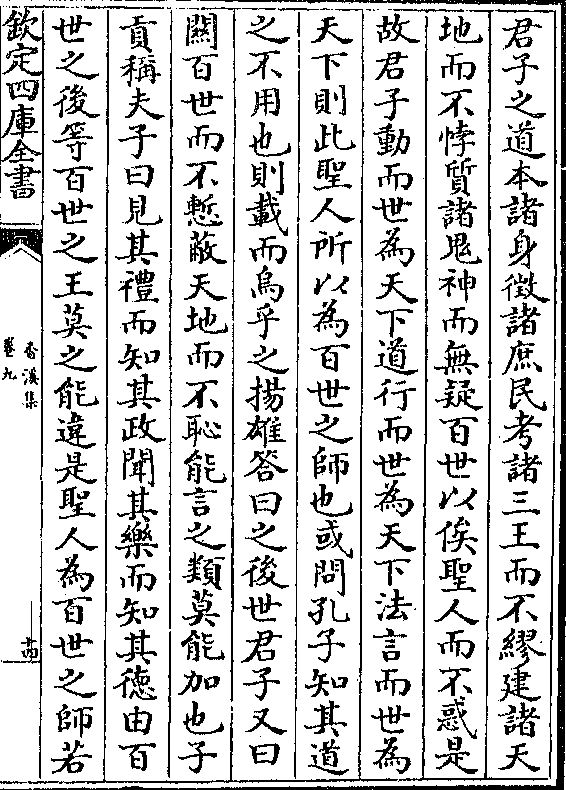 君子之道本諸身徵諸庶民考諸三王而不繆建諸天
地而不悖質諸鬼神而無疑百世以俟聖人而不惑是
故君子動而世為天下道行而世為天下法言而世為
天下則此聖人所以為百世之師也或問孔子知其道
之不用也則載而烏乎之揚雄答曰之後世君子又曰
關百世而不慙蔽天地而不恥能言之類莫能加也子
貢稱夫子曰見其禮而知其政聞其樂而知其徳由百
世之後等百世之王莫之能違是聖人為百世之師若
欽定四庫全書
香溪集
卷九
十四